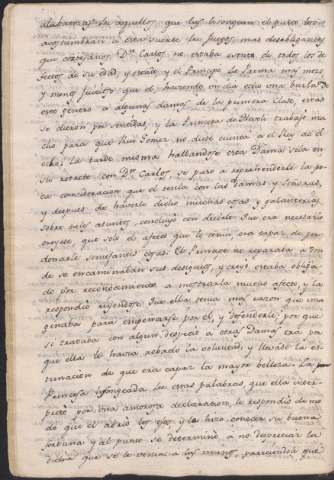 alabanzas de aquellos, que los lisongean el gusto, los
acostumbran a usar durante los juegos, mas desobligantes
que cortesanos. Dn. Carlos no estaba exento de todos los de
fectos de su edad, y estado, y el Principe de Parma muy mozo
y menos juicioso que el, haciendo un dia ellos una burla de
este genero a algunas damas de la primera Clase, estas
se dieron por sentidas, y la Princesa de Evoli trabajo mu
cho para que Rui Gomez no diese cuenta a el Rey de el
echo. La tarde misma hallandose esta Dama sola en
su retrete con Dn. Carlos, se puso a reprehenderle la po
ca consideracion que el tenia con las Damas y Señoras,
y despues de haverle dicho muchas cosas y galanterias
sobre este asunto, concluyo con decirle: Que era necesario
creyese, que solo el afecto que le tenia, era capaz de per
donarle semejantes cosas. El Principe no reparaba a don
de se encaminaban sus designios, y creyo estaba obliga
do por reconocimiento a mostrarla mucho afecto, y la
respondio riyendose: Que ella tenia mas razon que ima
ginaba para empeñarse por el, y defenderle; por que
si trataba con algun despecio a otras Damas era por
que ella le havia robado la voluntad, y llevado la es
timacion de que era capaz la mayor belleza. La
Princesa lisongeada con estas palabras, que ella inter
preto por una amorosa declaracion, le respondio de mo
do que el abrio los ojos, y la hizo conocer su buena
fortuna y al punto se determinó a no despreciar la
dicha que se le venia a las manos, pareciendole que